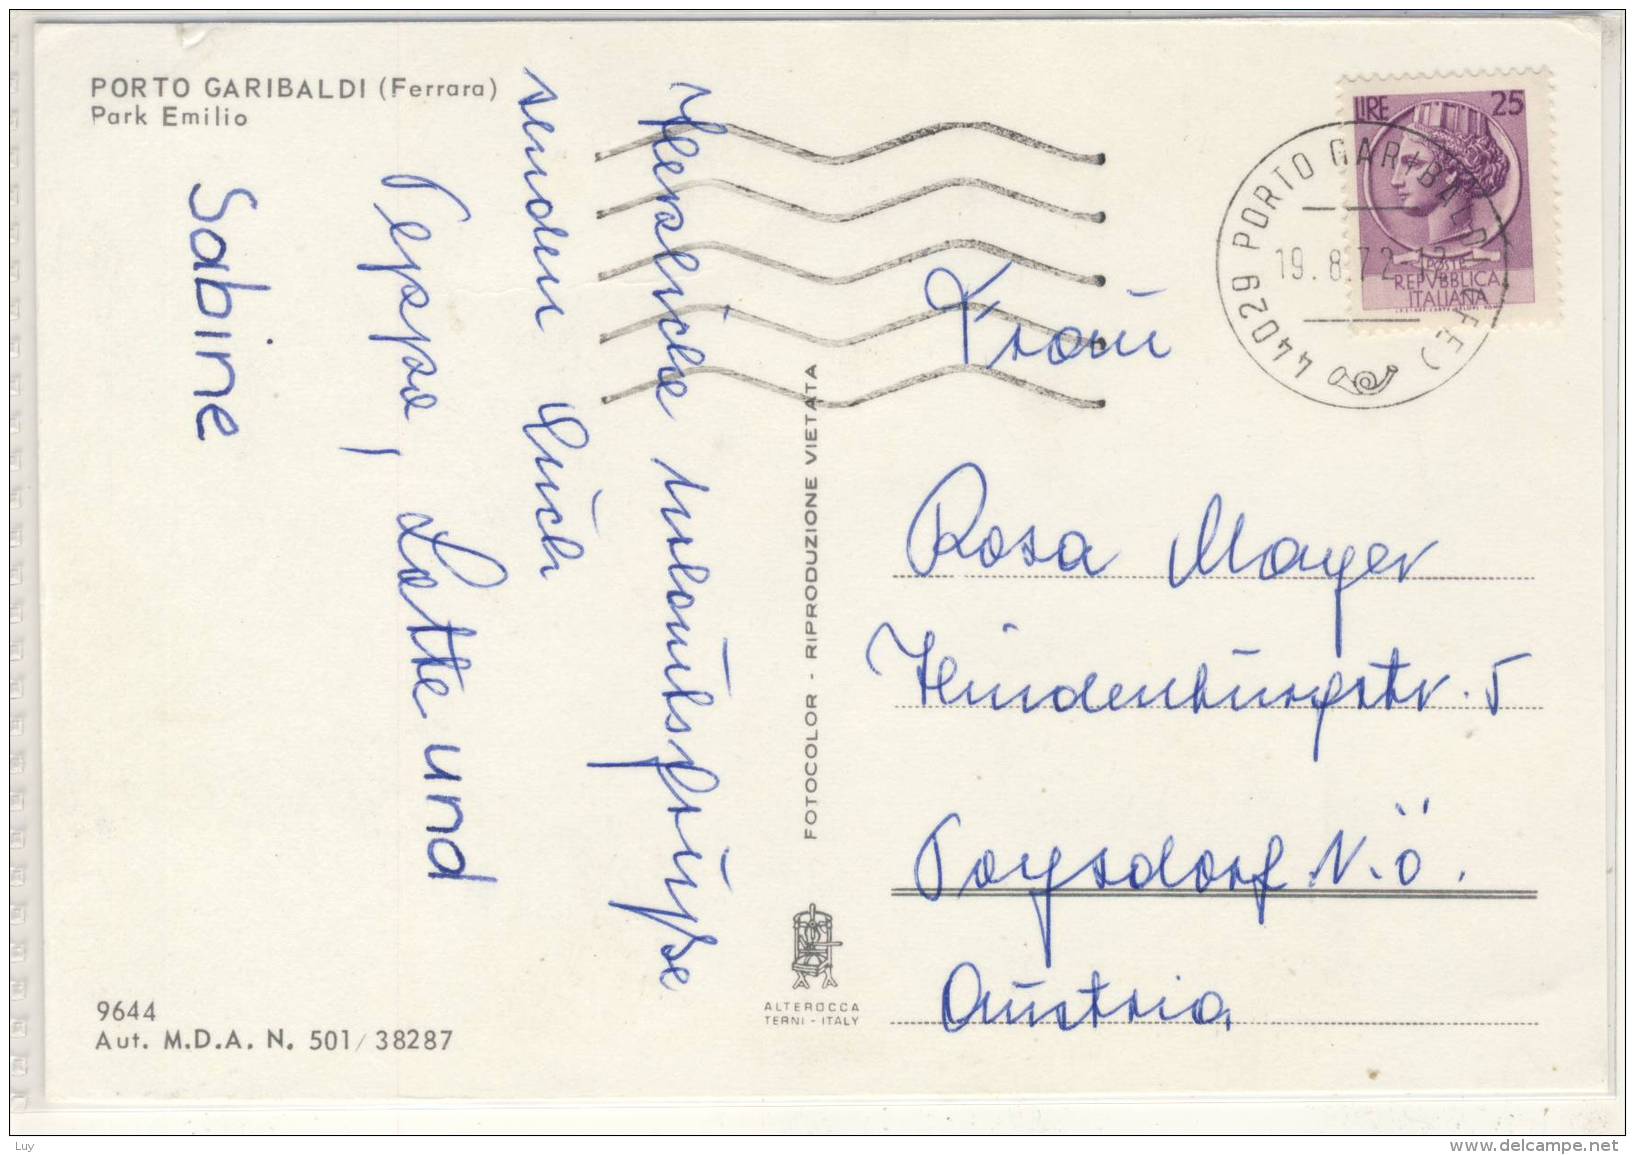 PORTO GARIBALDI (Ferrara)
Park Emilio
Herzliche Urlaubsgrüße
senden Euch
Peppo, Lotte und
Sabine
9644
Aut. M.D.A. N. 501/38287
FOTOCOLOR - RIPRODUZIONE VIETATA
ALTEROCCA
TERNI - ITALY
LIRE 25
POSTE
REPVBBLICA
ITALIANA
44029 PORTO GARIBALDI (FE)
19.8.72-12
Frau
Rosa Mayer
Hindenburgstr. 5
Poysdorf N.Ö.
Austria
Luy
www.delcampe.net